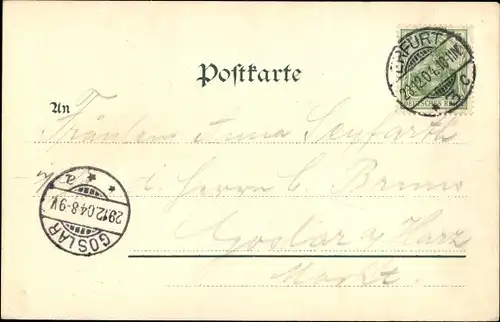 ERFURT
28.12.04. 10-11N.
* 3 c
DEUTSCHES REICH
Postkarte
An
Fräulein Anna Seyfarth
i. Herrn C. Bruns
Goslar a/ Harz
Markt.
GOSLAR
29.12.04.8-9V.
* a *